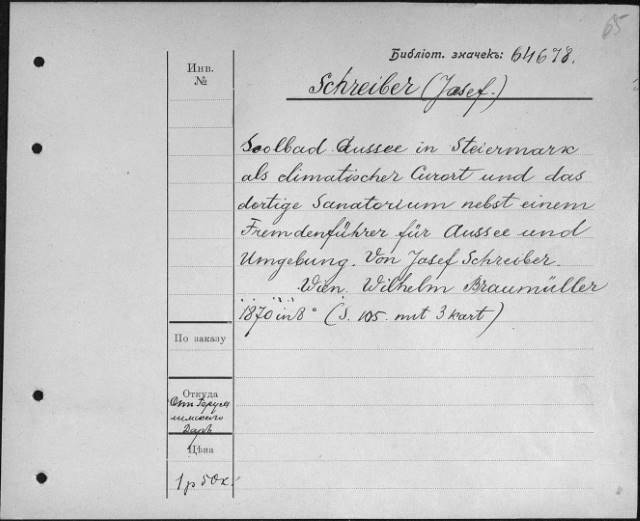 65
Библіот. значекъ: 64678.
Инв.
№
Schreiber (Josef.)
Soolbad Aussee in Steiermark
als climatischer Curort und das
dortige Sanatorium nebst einem
Fremdenführer für Aussee und
Umgebung. Von Josef Schreiber.
Wien. Wilhelm Braumüller
1870 in 8° (S. 105. mit 3 kart)
По заказу
Откуда
Даръ
Цѣна
1 р 50 к.